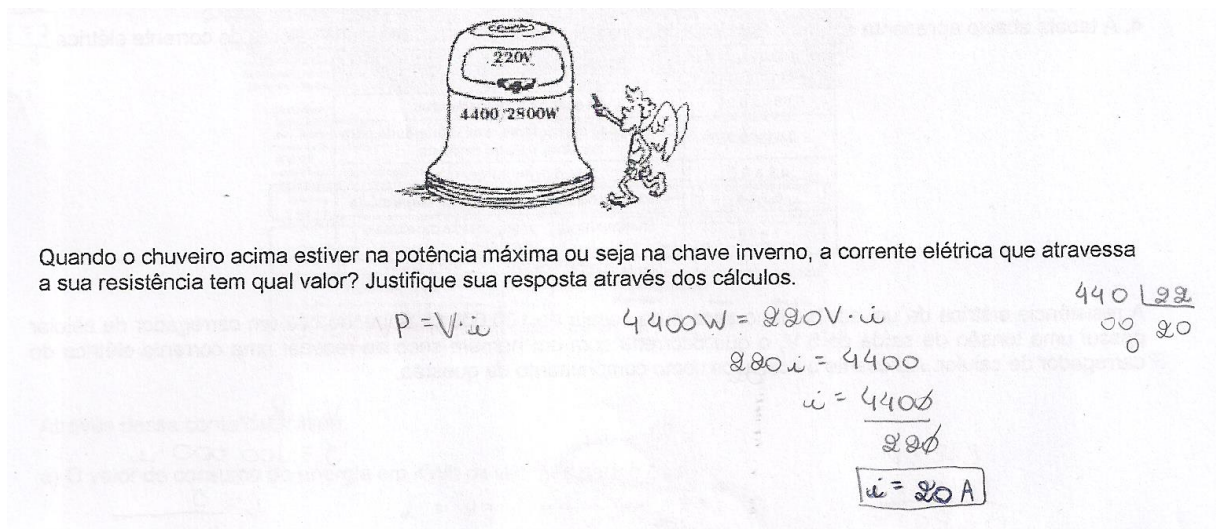 220V
4400/2800W
Quando o chuveiro acima estiver na potência máxima ou seja na chave inverno, a corrente elétrica que atravessa
a sua resistência tem qual valor? Justifique sua resposta através dos cálculos.
P = V · i
4400W = 220V · i
220 i = 4400
i = 4400
220
i = 20 A
440 22
00 20
0